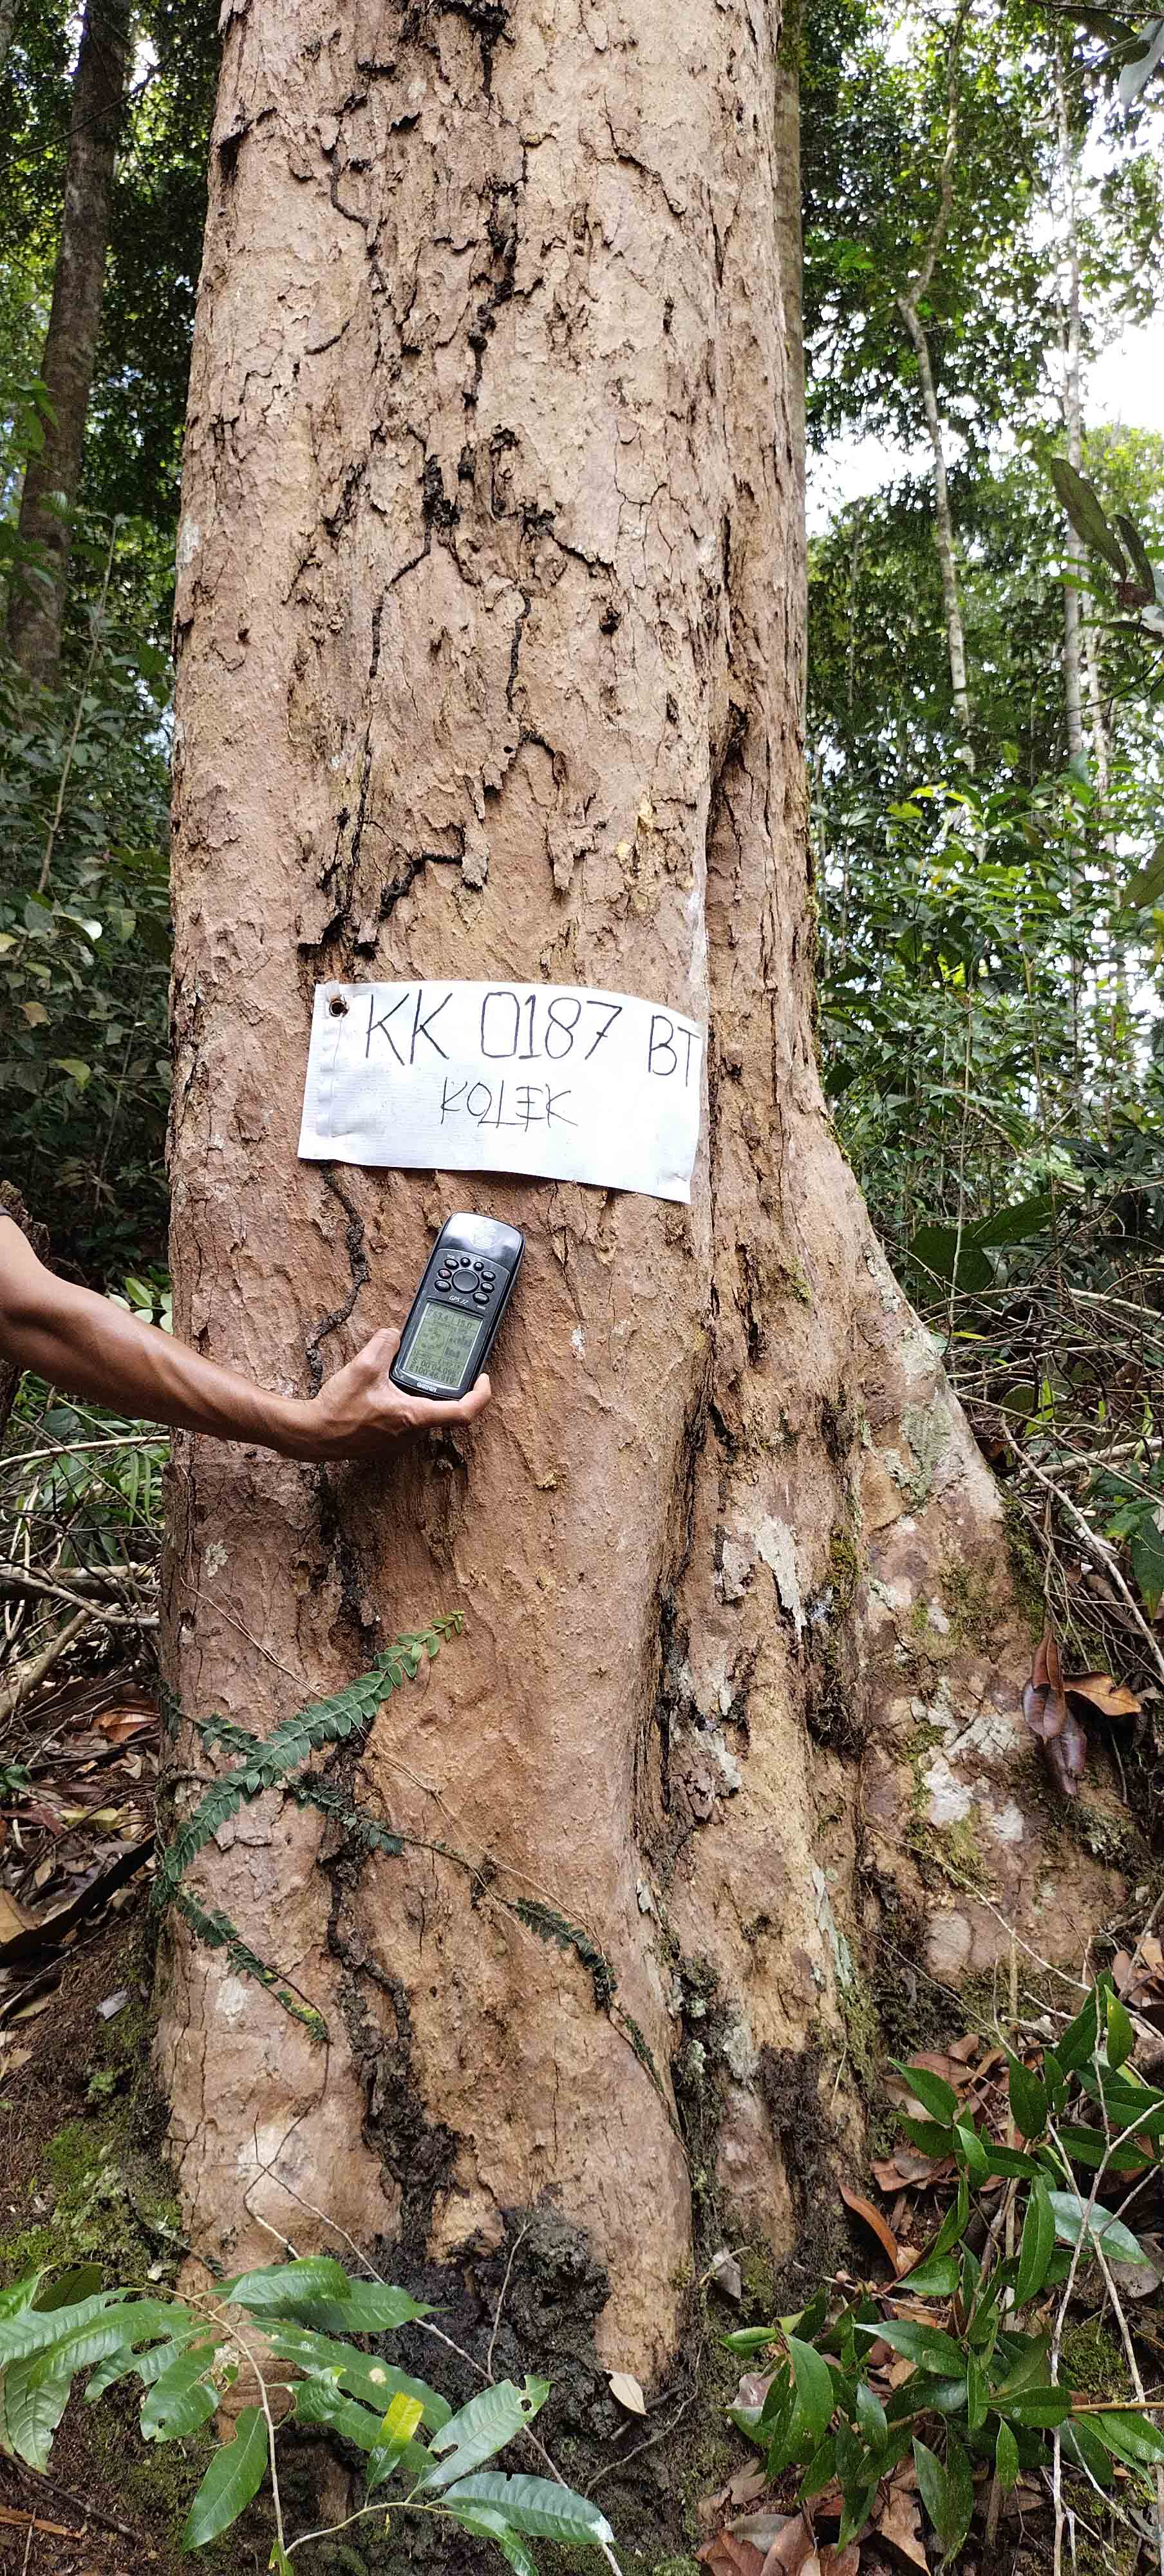 KK 0187 BT
KOLEK
GPS 72
GARMIN